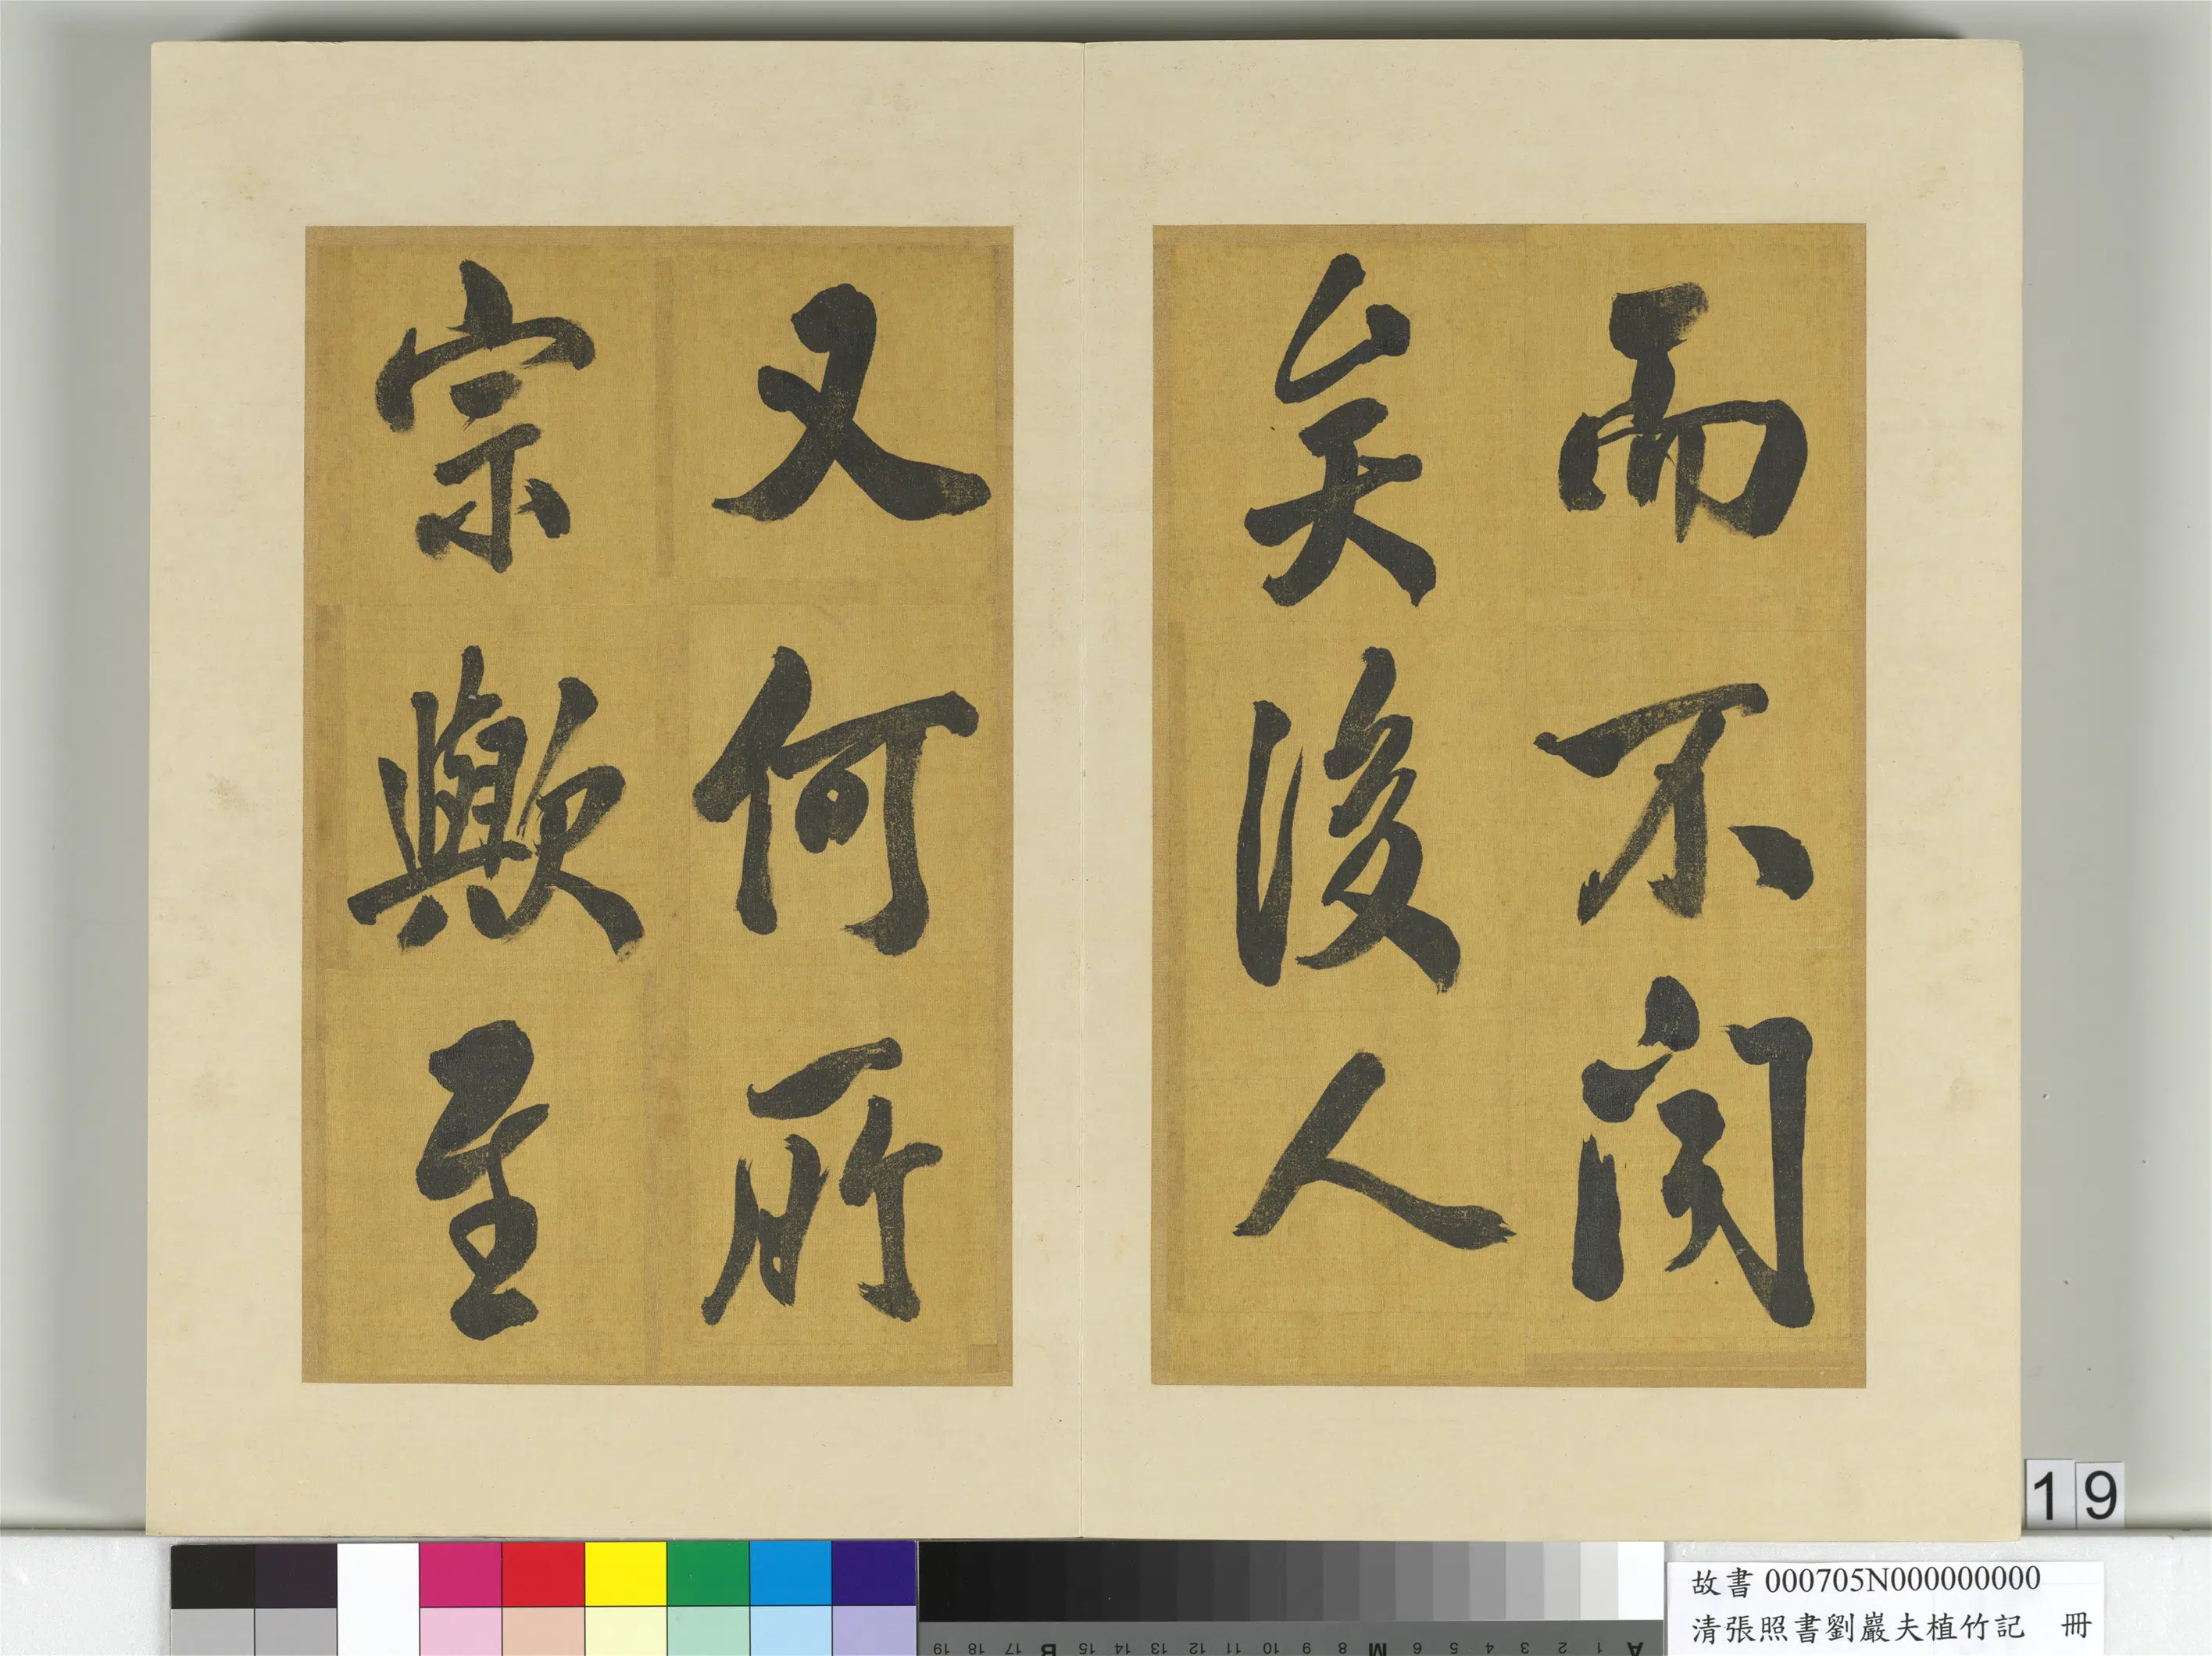 而不聞
矣後人
又何所
宗歟至
19
故書 000705N000000000
清張照書劉巖夫植竹記 冊
A 1 2 3 4 5 6 M 8 9 10 11 12 13 14 15 B 17 18 19